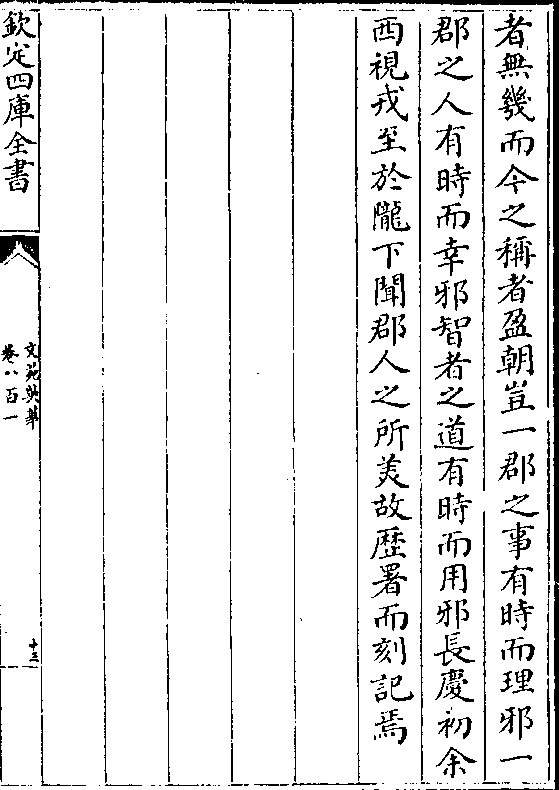 者無幾而今之稱者盈朝豈一郡之事有時而理邪一
郡之人有時而幸邪智者之道有時而用邪長慶初余
西視戎至於隴下聞郡人之所美故歷署而刻記焉
欽定四庫全書
文苑英華
卷八百一
十三